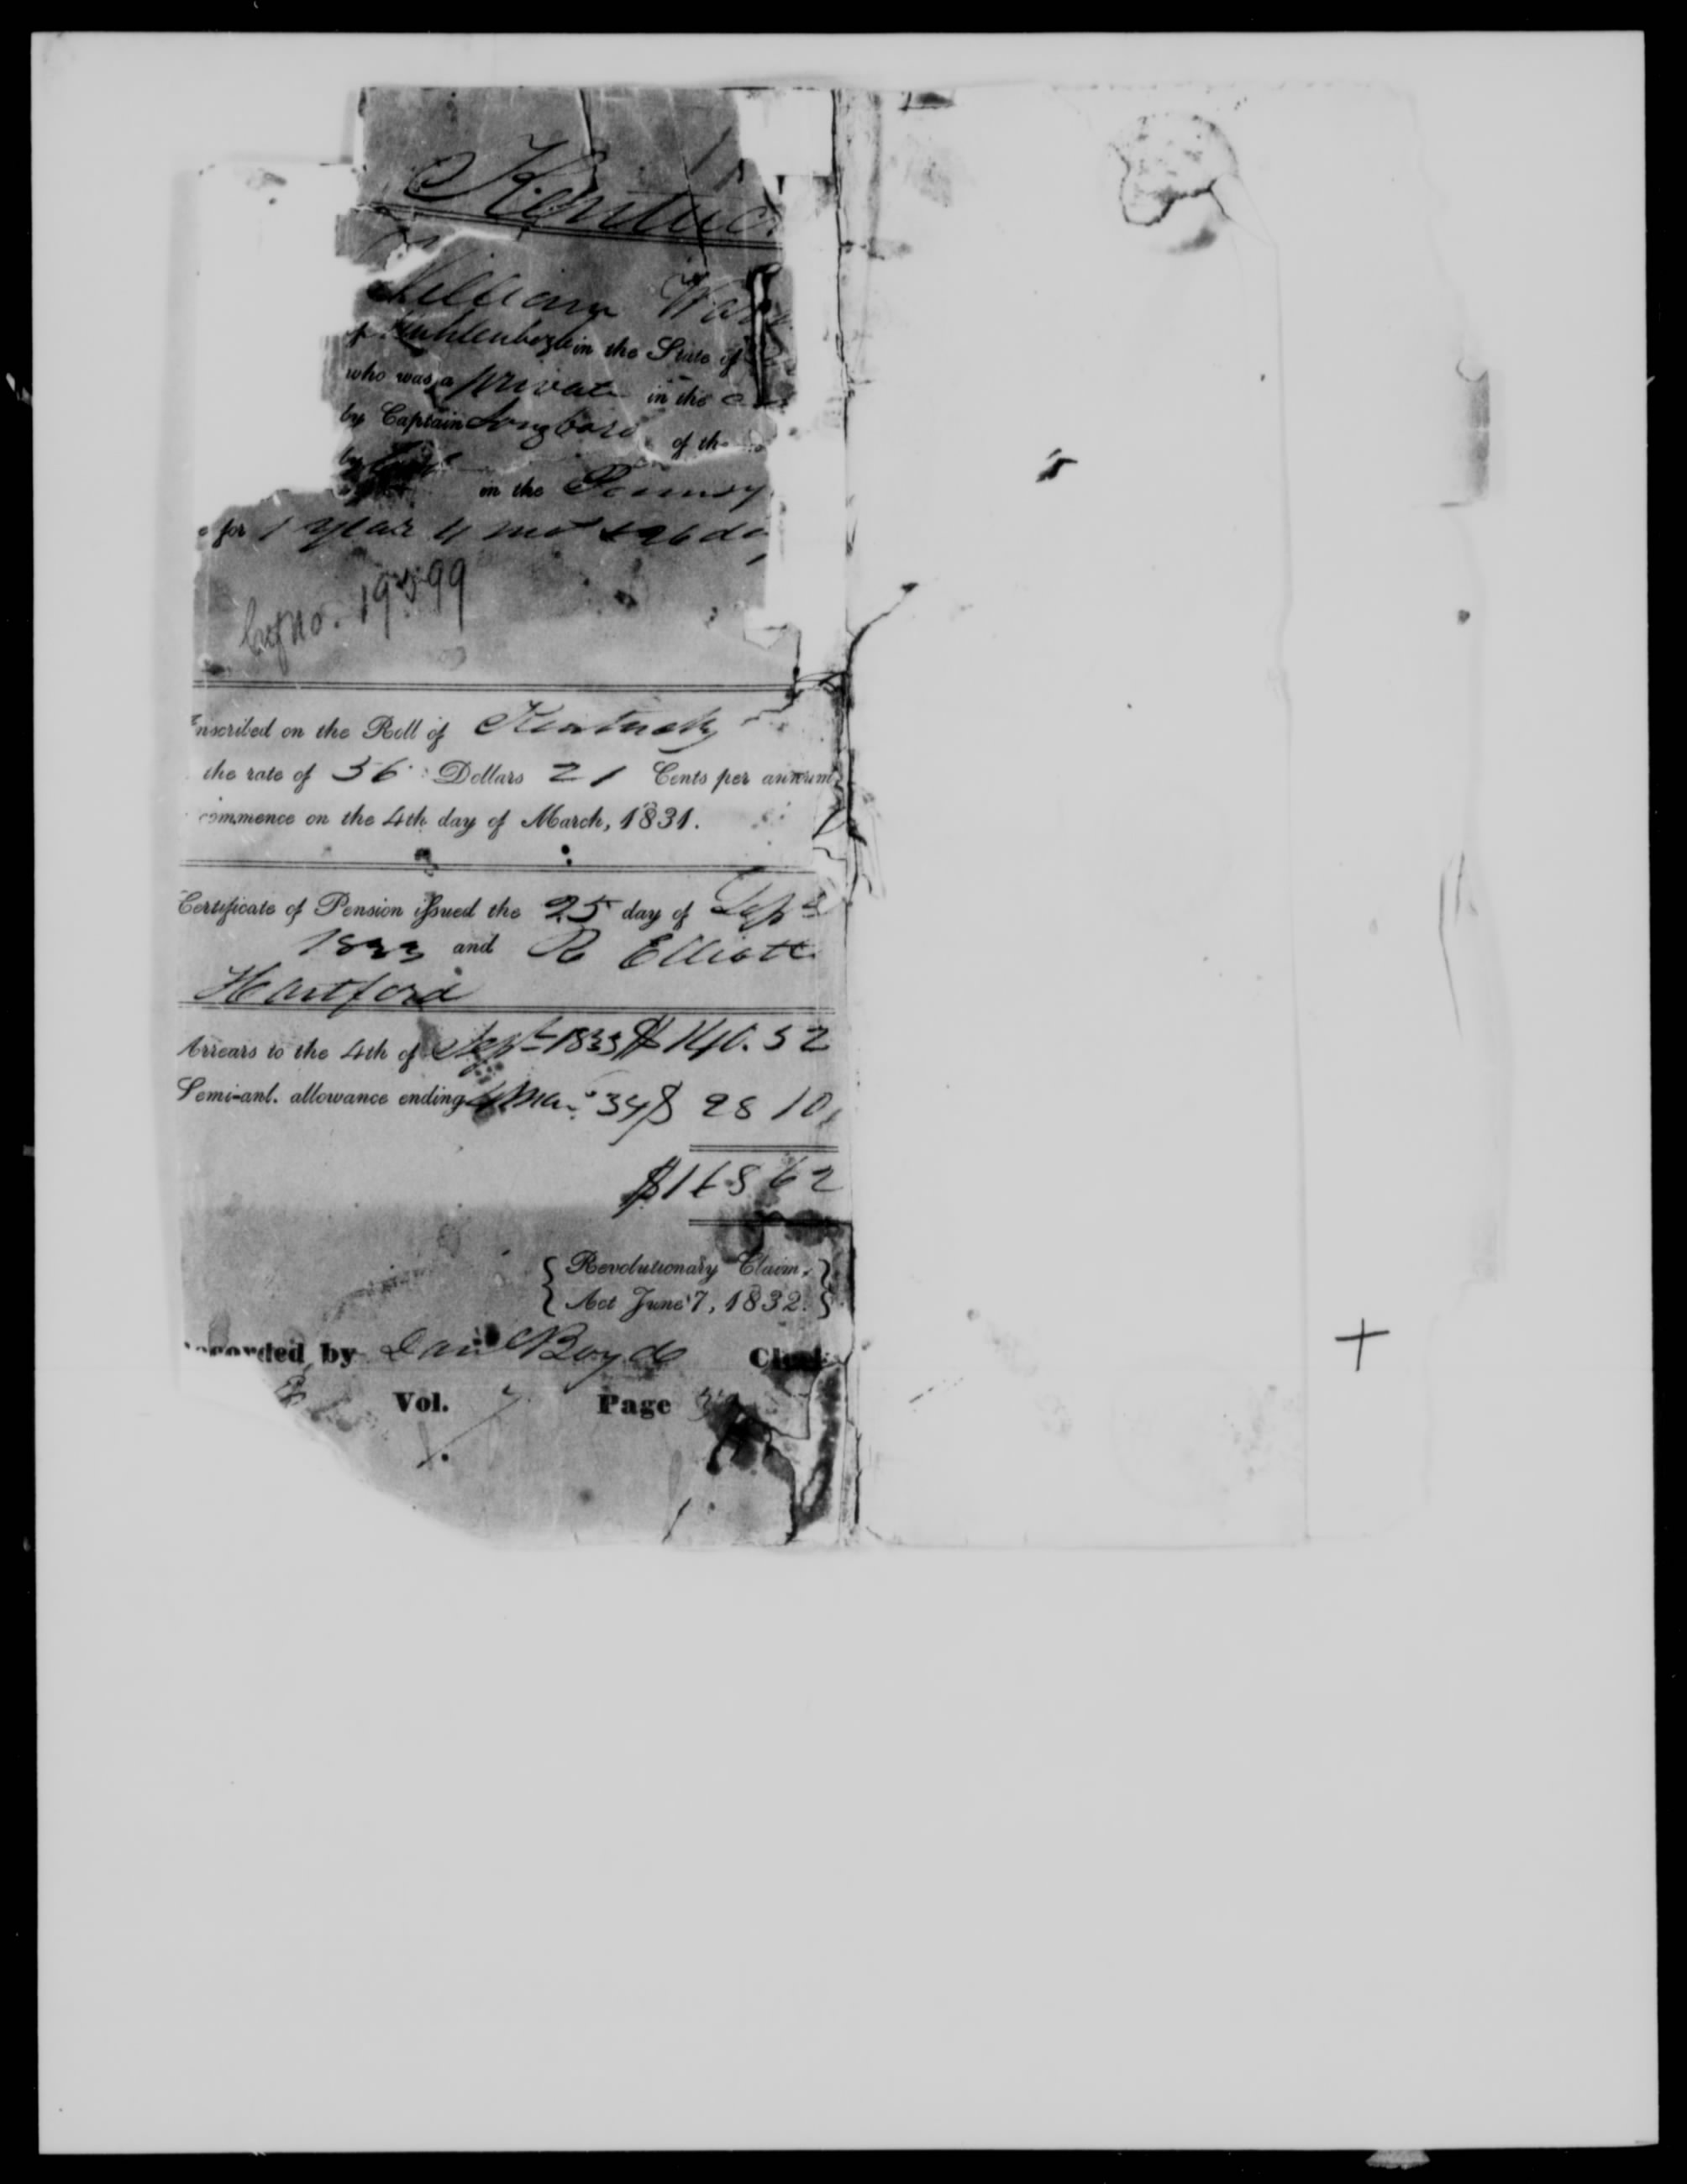 Kentuc
William Wa
Muhlenberg in the State of
who was a private in the
by Captain Longbore of th
by
in the Pennsy
for 1 year 4 mos & 26 da
Ctf no. 19599
nscribed on the Roll of Kentucky
the rate of 56 Dollars 21 Cents per annum
commence on the 4th day of March, 1831.
Certificate of Pension issued the 25 day of Sept
1833 and R Elliott
Hartford
Arrears to the 4th of Sept 1833 $ 140.52
Semi-anl. allowance ending 4 Mar 34 $ 28 10
$168 62
{ Revolutionary Claim, }
{ Act June 7, 1832. }
corded by Danl Boyd Clerk
Vol. 7 Page